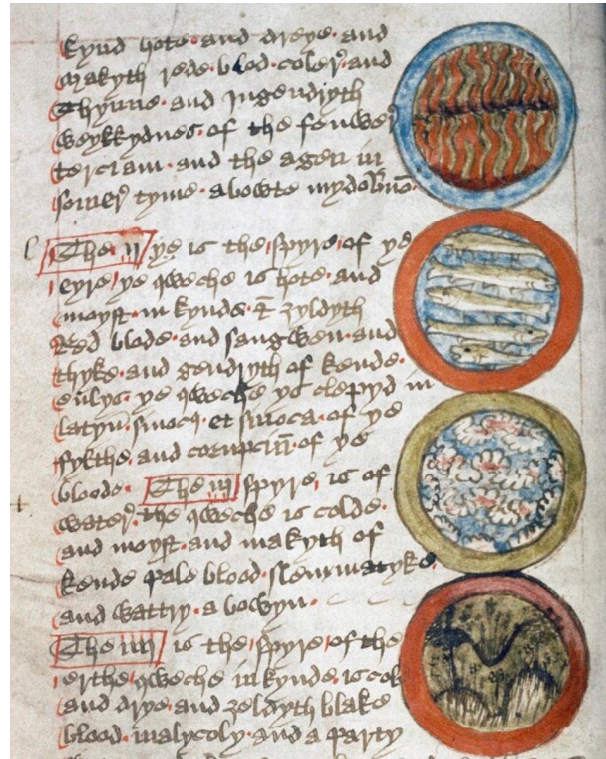 kynd hote and dreye and
makyth rede blod coler and
Thynne and Ingendryth
weykkydnes of the feuwer
terciam and the agen in
somer tyme abowte
The ij ye is the spyre of ye
eyre ye qweche is hote and
moyst in kynde zyldyth
Red blode and sangwen and
thyke and gendryth of kende
euylys ye qweche ys clepyd in
latyn sinocus et sinoca of ye
fylthe and of ye
bloode The iij spyre is of
water the qweche is colde
and moyst and makyth of
kende pale blood flewmatyke
and wattry a bowyn
The iiij is the spyre of the
erthe qweche in kynde is col
and drye and zeldyth blake
blood malycoly and a party